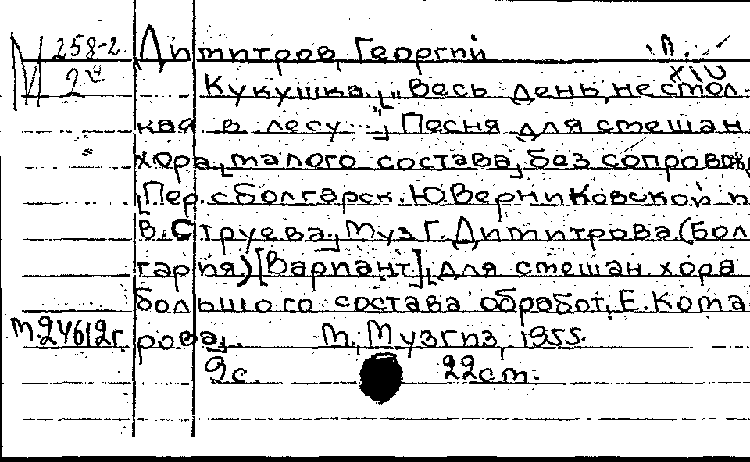 М 258-2 Димитров, Георгий п.
2в XIV
Кукушка. „Весь день, не смол-
кая в лесу..." Песня для смешан.
хора, малого состава, без сопровожд.
Пер. с болгарск. Ю. Верниковской и
В. Струева. Муз. Г. Димитрова (Бол-
гария) [Вариант] для смешан. хора
большого состава обработ. Е. Кома-
М24612г. рова. М., Музгиз, 1955.
9с. 22см.